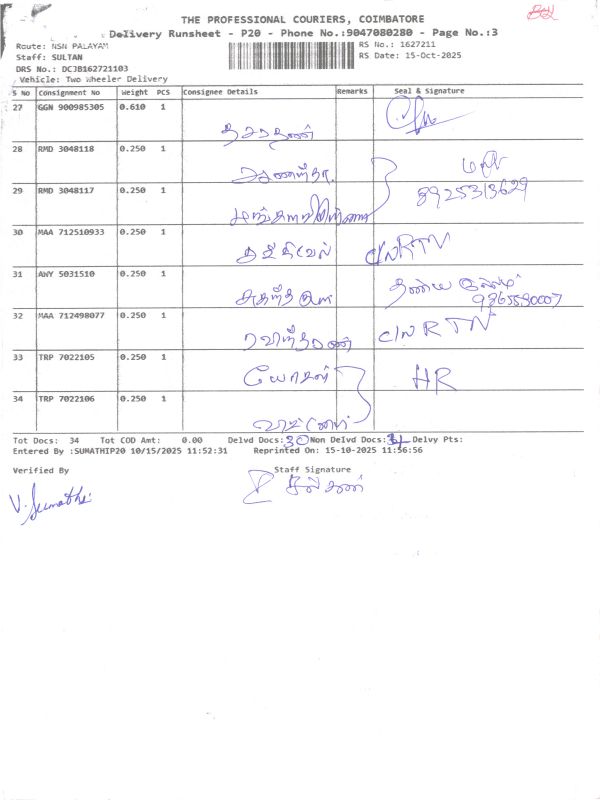 THE PROFESSIONAL COURIERS, COIMBATORE
Delivery Runsheet - P20 - Phone No.:9047080280 - Page No.:3
Route: NSN PALAYAM
RS No.: 1627211
Staff: SULTAN
RS Date: 15-Oct-2025
DRS No.: DCJB162721103
Vehicle: Two Wheeler Delivery
S No Consignment No Weight PCS Consignee Details Remarks Seal & Signature
27 GGN 900985305 0.610 1
28 RMD 3048118 0.250 1
29 RMD 3048117 0.250 1
8925313629
30 MAA 712510933 0.250 1
சக்திவேல் C/N RTN
31 AWY 5031510 0.250 1
9865580007
32 MAA 712498077 0.250 1
C/N RTN
33 TRP 7022105 0.250 1
HR
34 TRP 7022106 0.250 1
Tot Docs: 34 Tot COD Amt: 0.00 Delvd Docs: 30 Non Delvd Docs: Delvy Pts:
Entered By :SUMATHIP20 10/15/2025 11:52:31 Reprinted On: 15-10-2025 11:56:56
Verified By Staff Signature
V. Sumathi